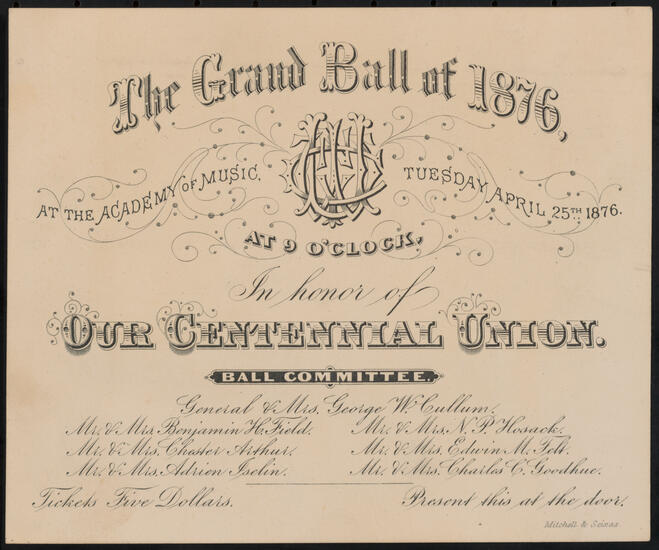 The Grand Ball of 1876,
AT THE ACADEMY OF MUSIC. TUESDAY APRIL 25TH 1876.
AT 9 O'CLOCK,
In honor of
OUR CENTENNIAL UNION.
BALL COMMITTEE.
General & Mrs. George W. Cullum.
Mr. & Mrs. Benjamin H. Field. Mr. & Mrs. N. P. Hosack.
Mr. & Mrs. Chester Arthur. Mr. & Mrs. Edwin M. Felt.
Mr. & Mrs. Adrien Iselin. Mr. & Mrs. Charles C. Goodhue.
Tickets Five Dollars. Present this at the door.
Mitchell & Seixas.